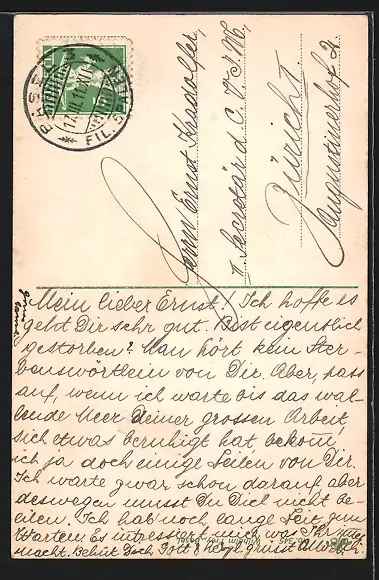 BASEL
17.III.11.
FIL.
Herrn Ernst
II Secretär d. C. V. J. M.,
Zürich I.
Augustinerhof 2
Mein lieber Ernst! Ich hoffe es
geht Dir sehr gut. Bist eigentlich
gestorben? Man hört kein Ster-
benswörtlein von Dir. Aber, pass
auf, wenn ich warte bis das wal-
lende Meer Deiner grossen Arbeit,
sich etwas beruhigt hat bekom̅
ich ja doch einige Zeilen von Dir.
Ich warte zwar schon darauf aber
deswegen musst Du Dich nicht be-
eilen. Ich hab noch lange Zeit zum
Warten. Es intressiert mich was Ihr
macht. Behüt Dich Gott! herzl. grüsst